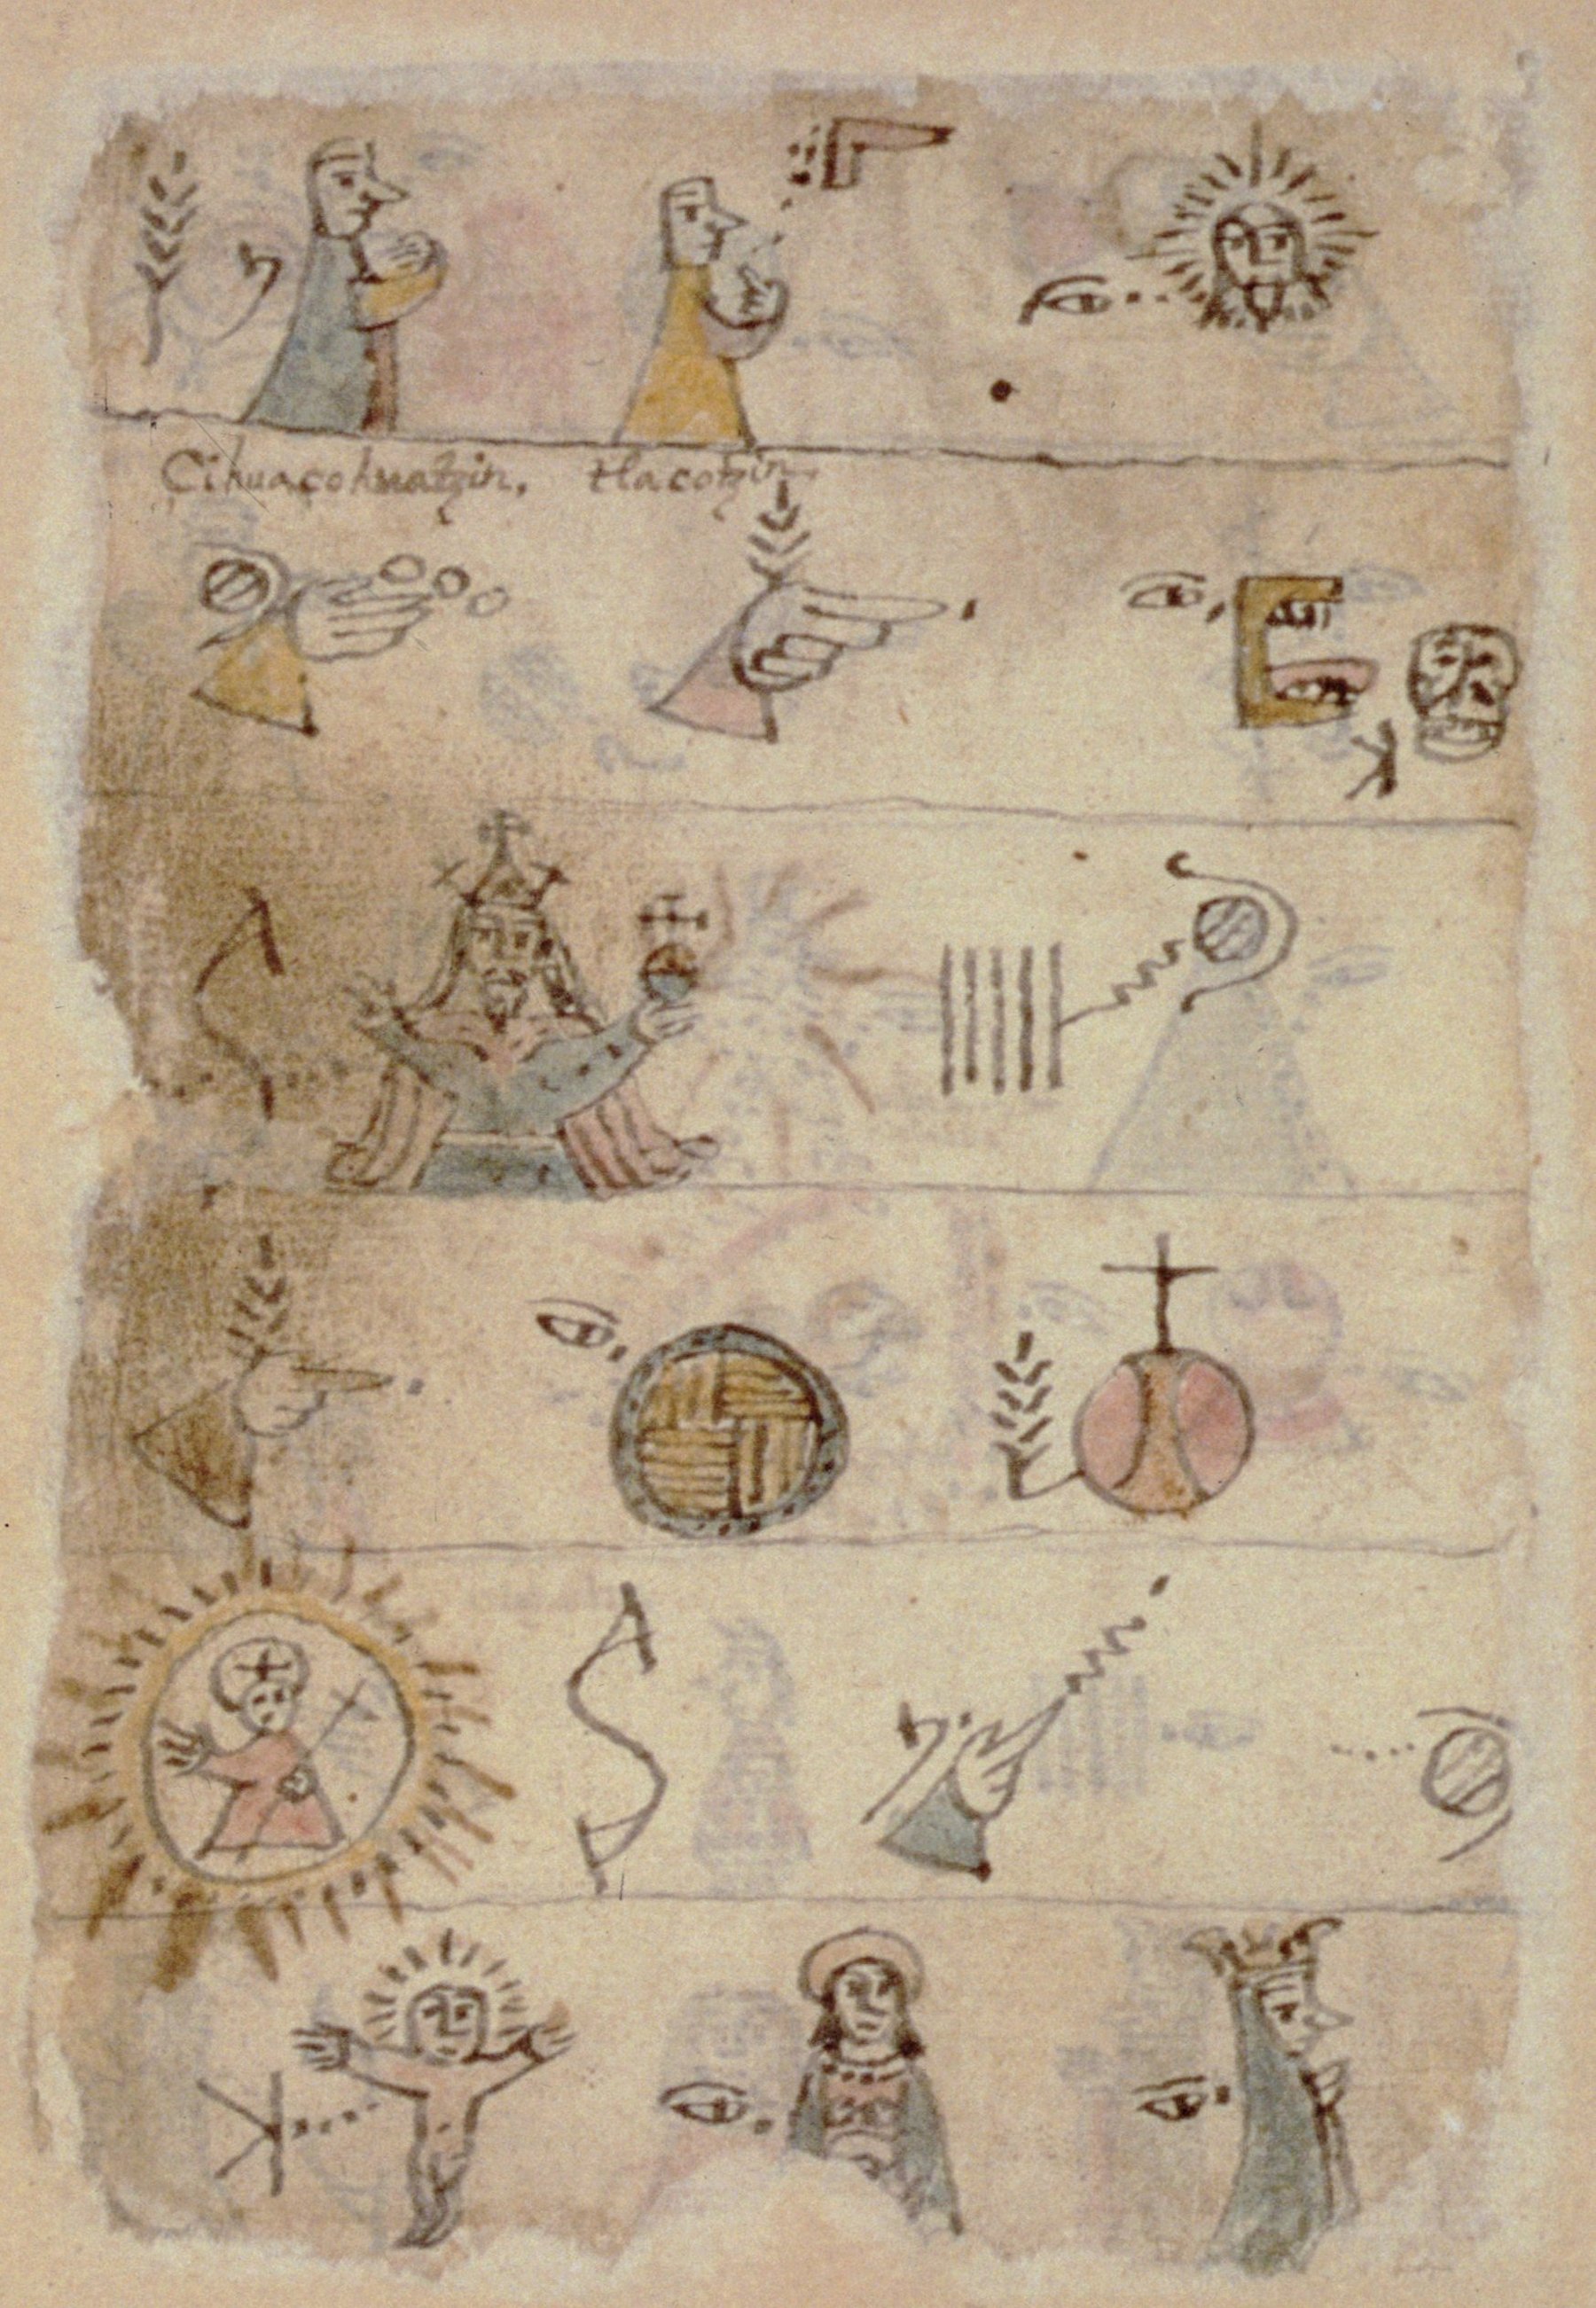 Cihuacohuatzin, tlacotzin